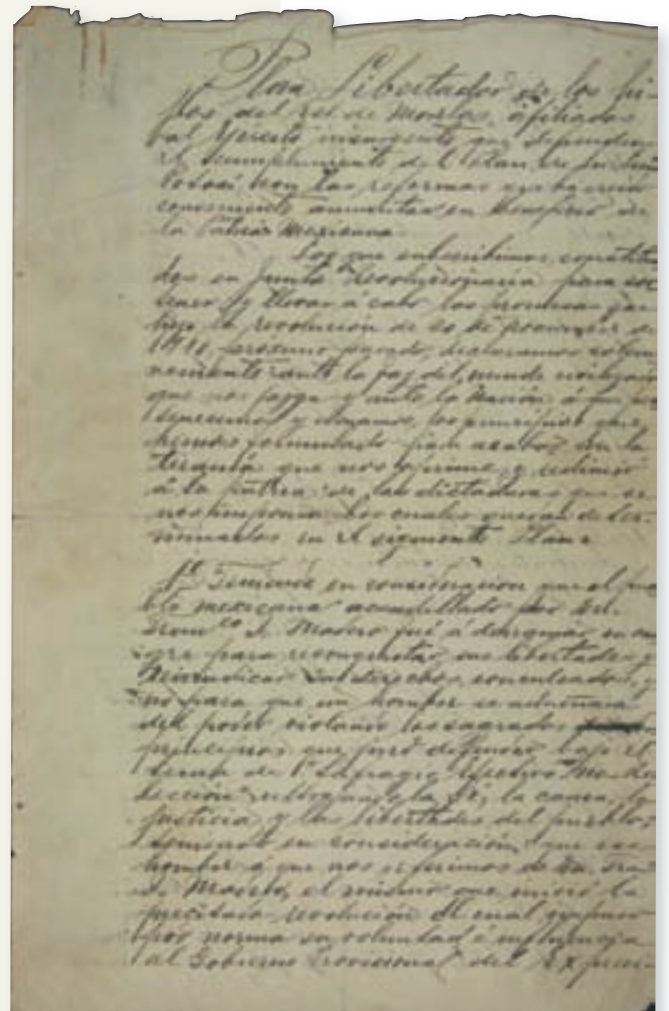 Plan Libertador de los hi-
jos del Estado de Morelos, afiliados
al Ejército insurgente que defienden
el cumplimiento del Plan de San Luis
Potosí, con las reformas que ha creido
conveniente aumentar en beneficio de
la Patria Mexicana.
Los que subscribimos, constitui
dos en Junta Revolucionaria para sos
tener y llevar á cabo las promesas que
hizo la revolución de 20 de Noviembre de
1910, próximo pasado, declaramos solem
nemente ante la faz del mundo civilizado
que nos juzga y ante la Nación á que per
tenecemos y amamos, los principios que
hemos formulado para acabar con la
tiranía que nos oprime y redimir
á la patria de las dictaduras que se
nos imponen los cuales quedan deter-
minados en el siguiente Plan:
1º Teniendo en consideración que el pue
blo mexicano acaudillado por Dn.
Franco. I. Madero fué á derramar su san
gre para reconquistar sus libertades y
reivindicar sus derechos conculcados, y
no para que un hombre se adueñara
del poder violando los sagrados
principios que juró defender bajo el
lema de "Sufragio Efectivo" "No Ree
lección" ultrajando la fé, la causa, la
justicia y las libertades del pueblo;
teniendo en consideración: que ese
hombre á que nos referimos es Dn. Franco.
I. Madero, el mismo que inició la
precitada revolución el cual impuso
por norma su voluntad é influencia
al Gobierno Provisional del Ex presi-